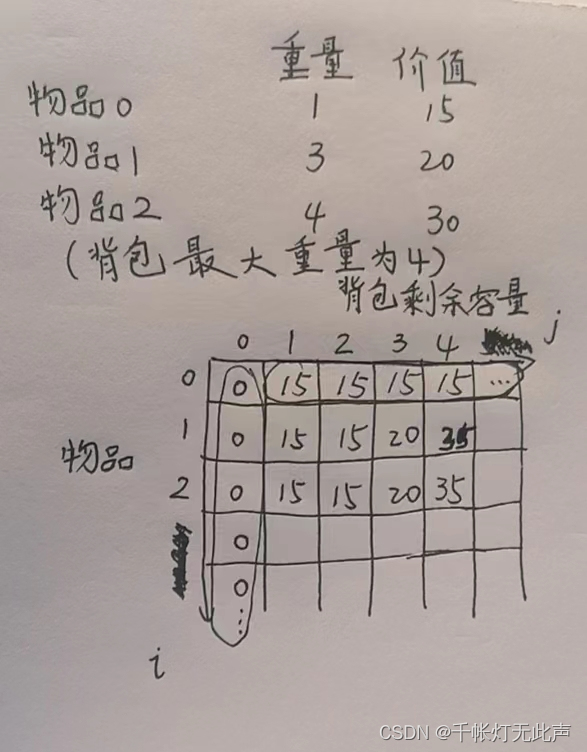 重量 价值
物品0 1 15
物品1 3 20
物品2 4 30
(背包最大重量为4)
背包剩余容量
0 1 2 3 4 j
0 0 15 15 15 15 ...
1 0 15 15 20 35
物品
2 0 15 15 20 35
0
0
⋮
i
CSDN @千帐灯无此声